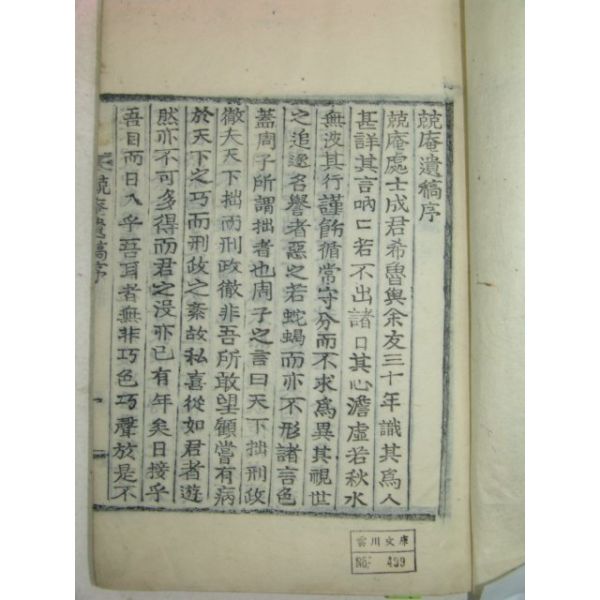 兢庵遺稿序
兢庵處士成君希魯與余友三十年識其爲人
甚詳其言吶口若不出諸口其心澹虛若秋水
無波其行謹飭循常守分而不求爲異其視世
之追逐名譽者惡之若蛇蝎而亦不形諸言色
蓋周子所謂拙者也周子之言曰天下拙刑政
徹夫天下拙而刑政徹非吾所敢望顧嘗有病
於天下之巧而刑政之紊故私喜從如君者遊
然亦不可多得而君之沒亦已有年矣日接乎
吾目而日入乎吾耳者無非巧色巧聲於是不
兢庵遺稿序
一
雲川文庫
No. 439